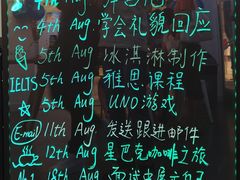 4th Aug
4th Aug 学会礼貌回应
5th Aug 冰淇淋制作
IELTS 5th Aug 雅思课程
5th Aug UNO游戏
Email 11th Aug 发送跟进邮件
12th Aug 星巴克咖啡之旅
18th Aug 面试